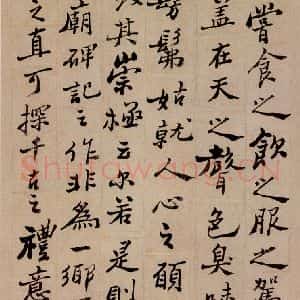 嘗食之飲之服之駕
蓋在天之聲色臭
髣髴姑就人心之願
其崇極云尔若是則
廟碑記之作非為一鄉
之真可探千古之禮意